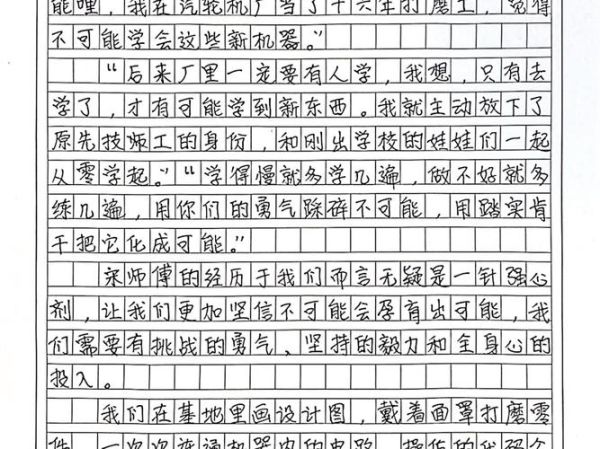 能哩，我在汽轮机厂当了十六年打磨工，觉得
不可能学会这些新机器。”
“后来厂里一定要有人学，我想，只有去
学了，才有可能学到新东西。我就主动放下了
原先技师工的身份，和刚出学校的娃娃们一起
从零学起。”“学得慢就多学几遍，做不好就多
练几遍，用你们的勇气踩碎不可能，用踏实肯
干把它化成可能。”
宋师傅的经历于我们而言无疑是一针强心
剂，让我们更加坚信不可能会孕育出可能，我
们需要有挑战的勇气、坚持的毅力和全身心的
投入。
我们在基地里画设计图，戴着面罩打磨零
件，一次次连通机器内的电路，操作的代码个